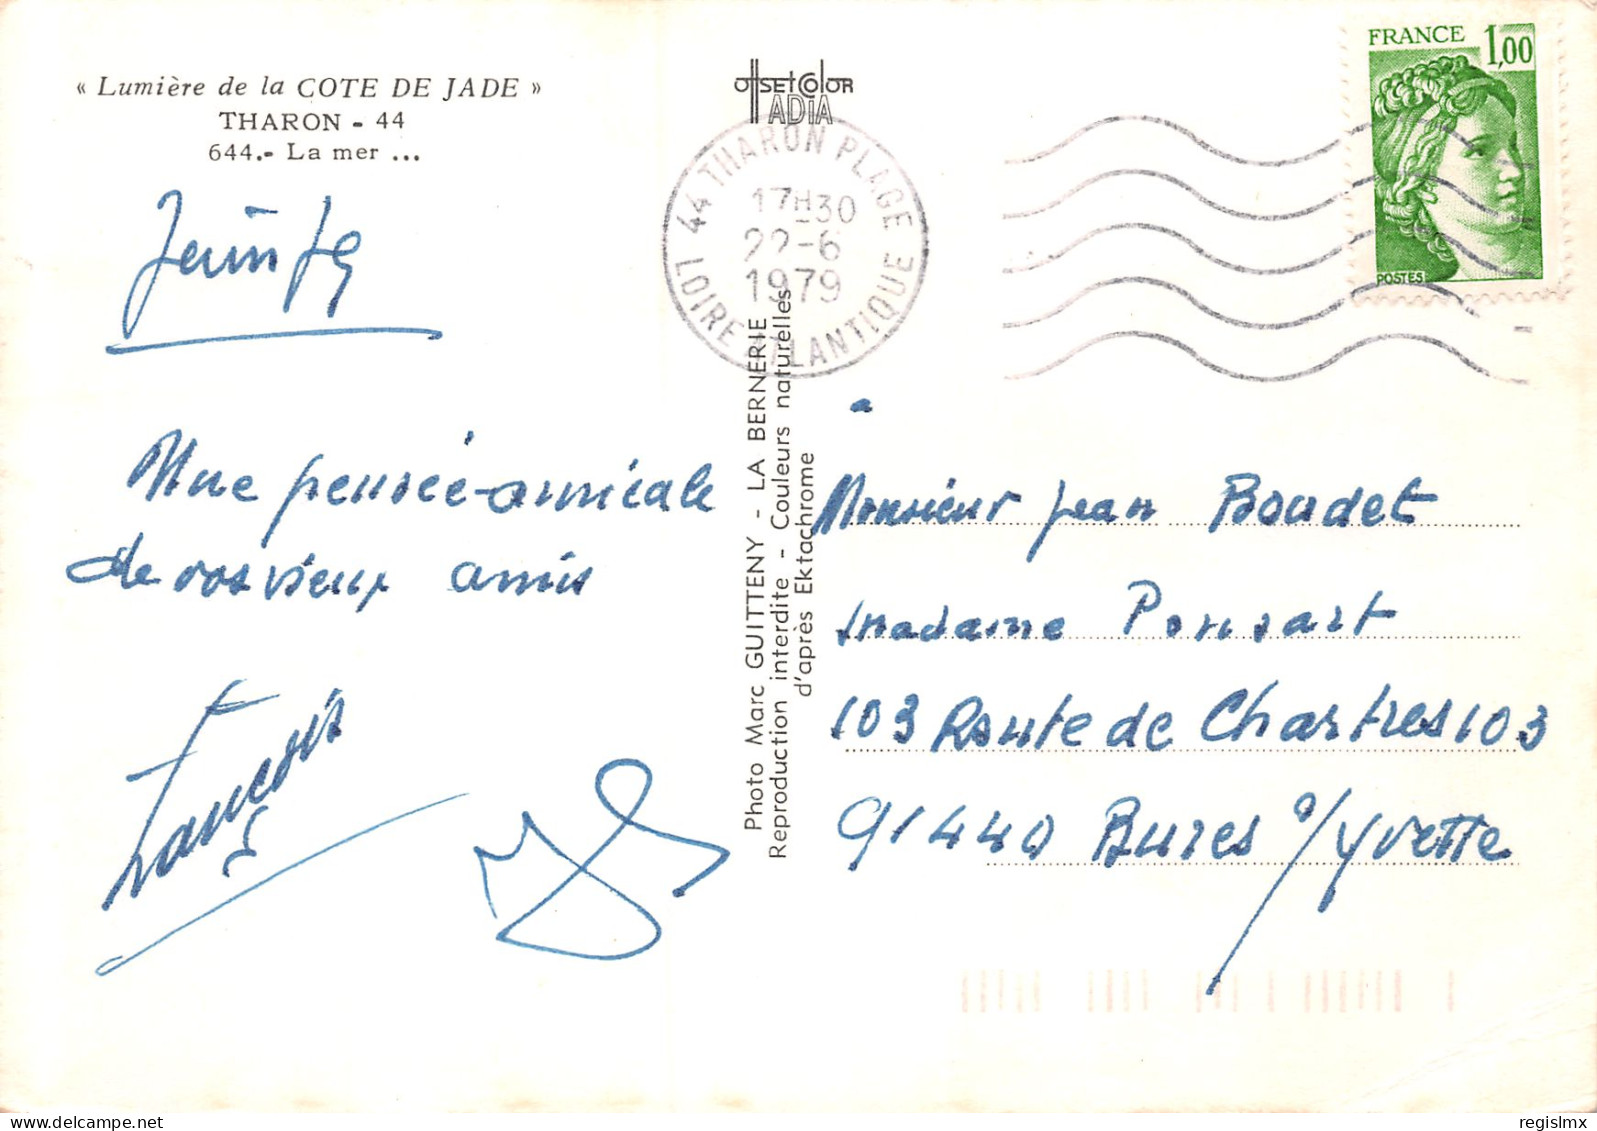 « Lumière de la COTE DE JADE »
THARON - 44
644.- La mer ...
Juin 79
Une pensée amicale
de vos vieux amis
OffSET COlOR
IADIA
44 THARON PLAGE
17H30
22-6
1979
LOIRE ATLANTIQUE
FRANCE 1,00
POSTES
Photo Marc GUITTENY - LA BERNERIE
Reproduction interdite - Couleurs naturelles
d'après Ektachrome
Monsieur Jean Boudet
madame Ponsart
103 Route de Chartres 103
91440 Bures s/Yvette
regislmx